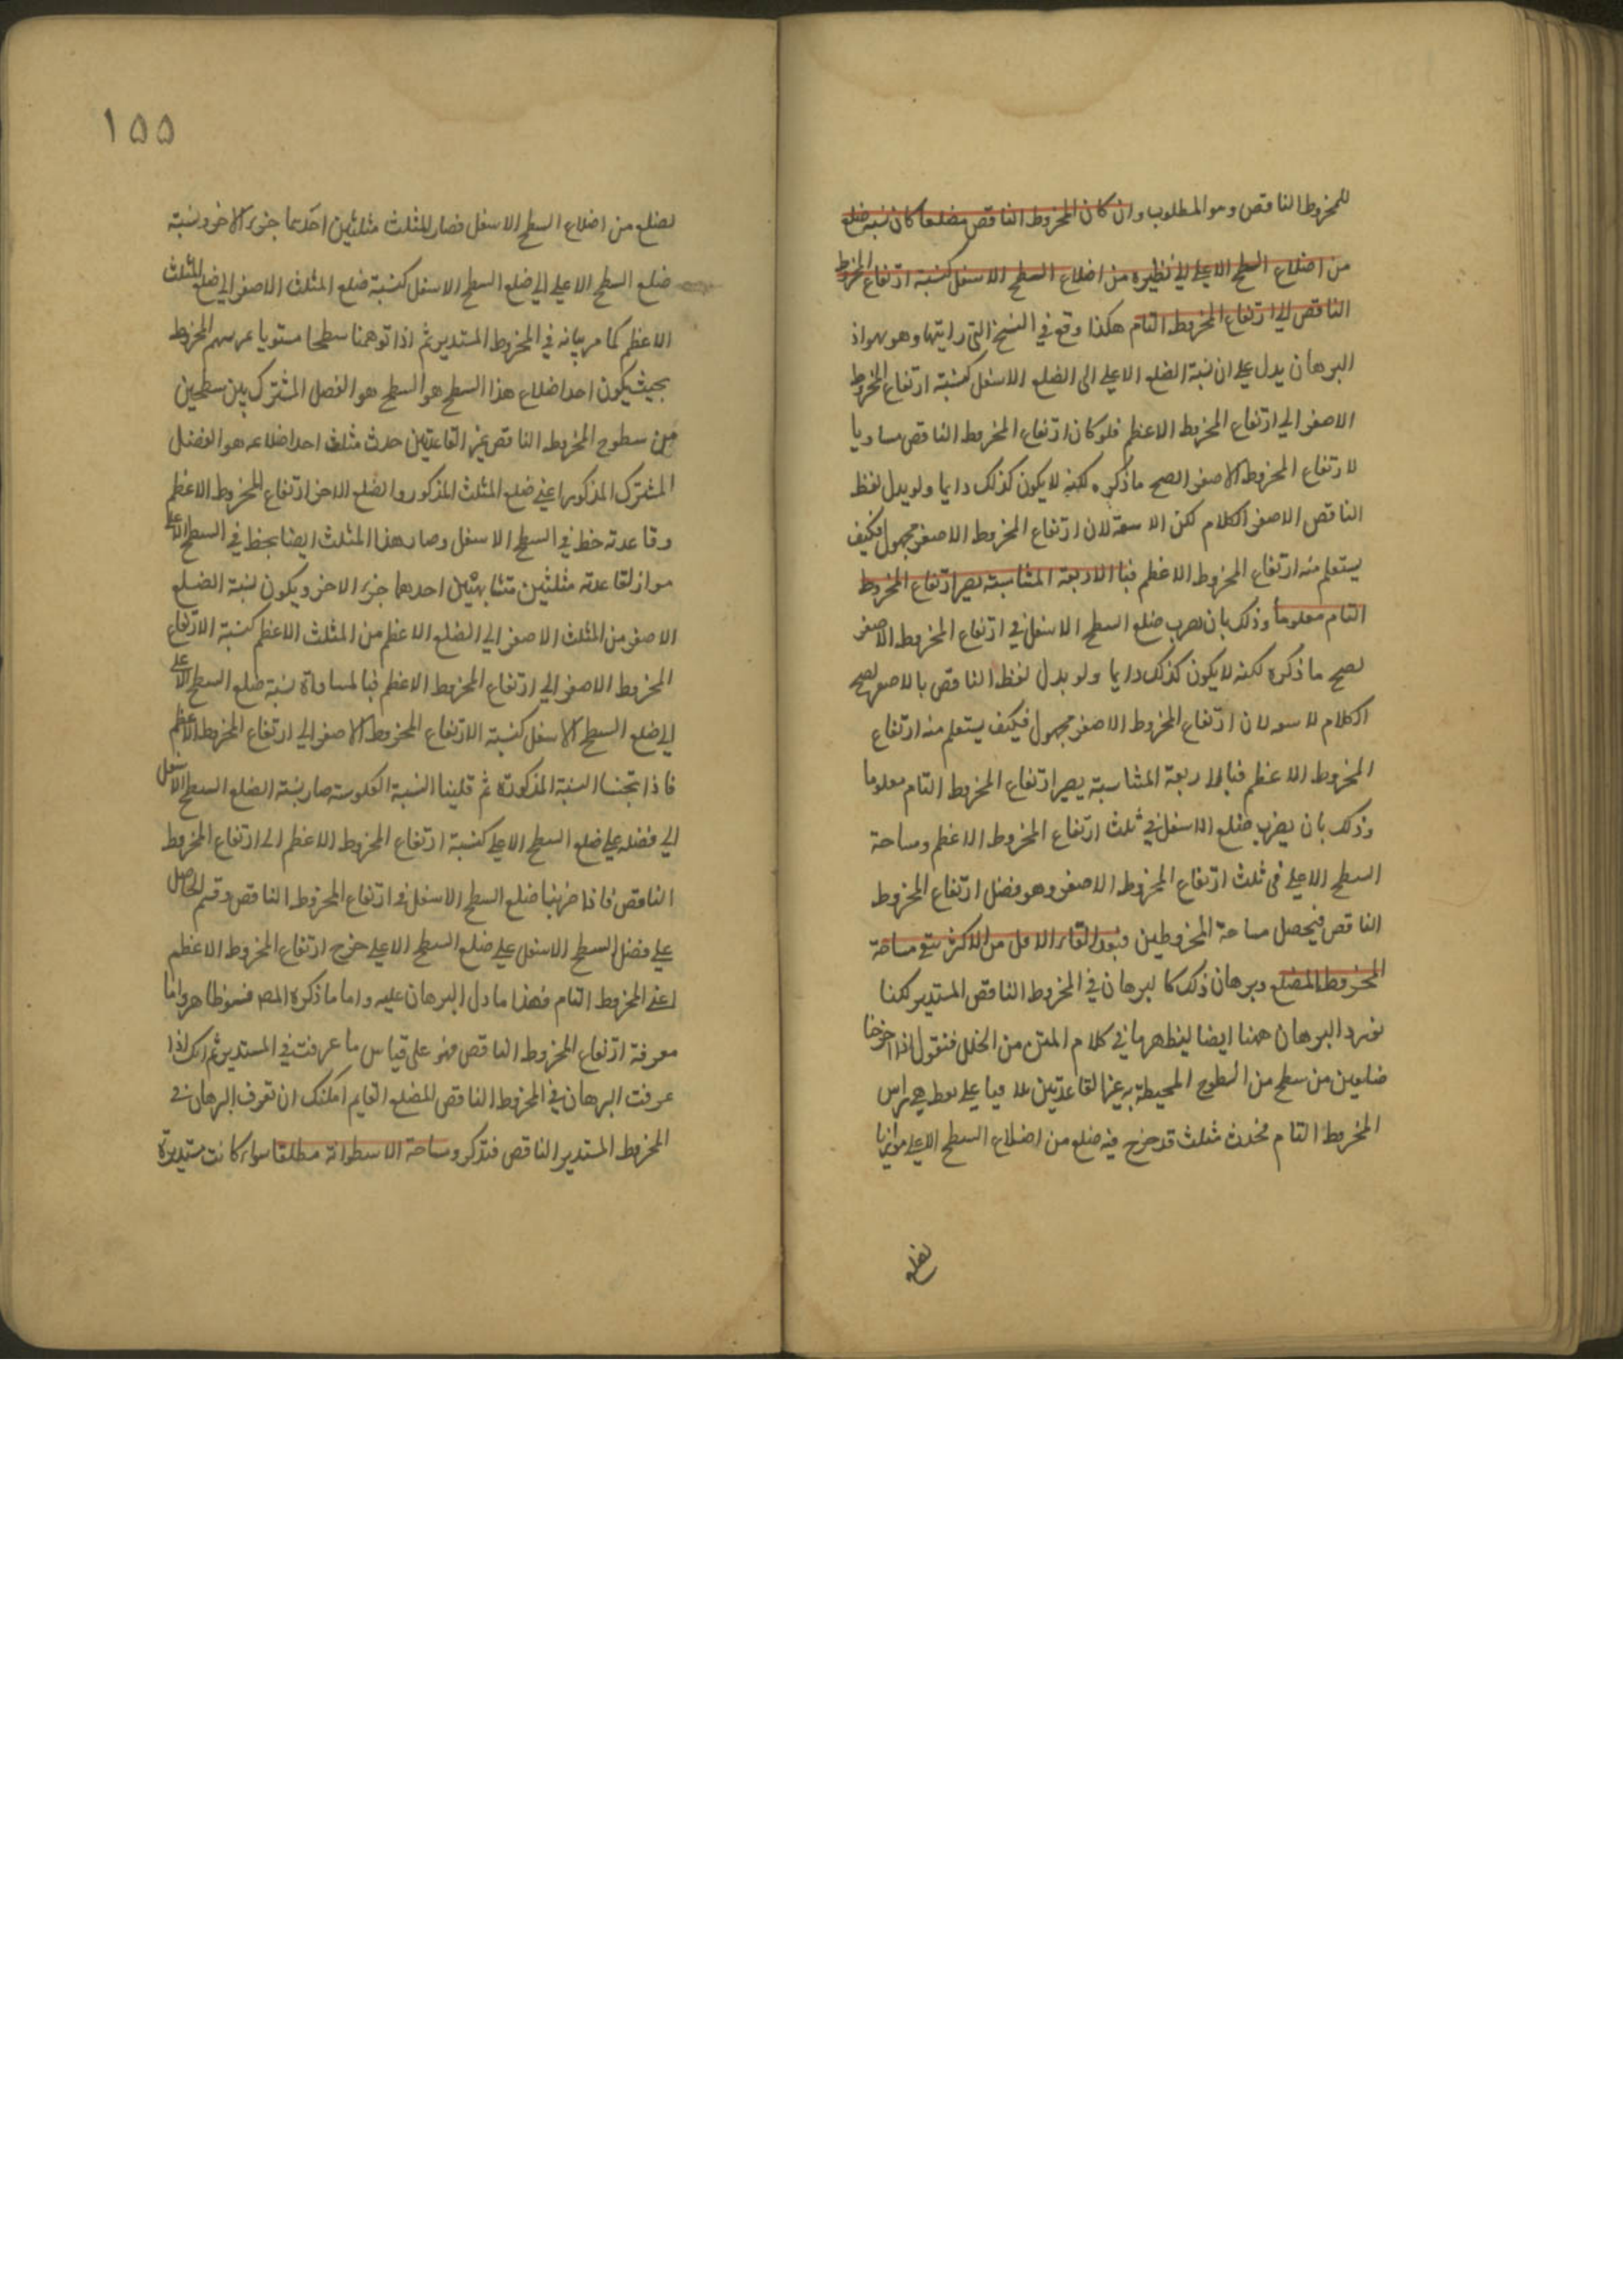 للمخروط الناقص وهو المطلوب وان كان المخروط الناقص مضلعا كان نسبة ضلع
من اضلاع السطح الاعلى الى نظيره من اضلاع السطح الاسفل كنسبة ارتفاع المخروط
الناقص الى ارتفاع المخروط التام هكذا وقع في النسخ التى رايتها وهو سهو اذ
البرهان يدل على ان نسبة الضلع الاعلى الى الضلع الاسفل كنسبة ارتفاع المخروط
الاصغر الى ارتفاع المخروط الاعظم فلو كان ارتفاع المخروط الناقص مساويا
لارتفاع المخروط الاصغر لصح ما ذكره لكنه لا يكون كذلك دايما ولو بدل لفظ
الناقص الاصغر الكلام لكن لان ارتفاع المخروط الاصغر مجهول فكيف
يستعلم منه ارتفاع المخروط الاعظم فبالاربعة المتناسبة يصير ارتفاع المخروط
التام معلوما وذلك بان يضرب ضلع السطح الاسفل في ارتفاع المخروط الاصغر
لصح ما ذكره لكنه لا يكون كذلك دايما ولو بدل لفظ الناقص بالاصغر لصح
الكلام لان ارتفاع المخروط الاصغر مجهول فكيف يستعلم منه ارتفاع
المخروط الاعظم فبالاربعة المتناسبة يصير ارتفاع المخروط التام معلوما
وذلك بان يضرب ضلع الاسفل في ثلث ارتفاع المخروط الاعظم ومساحة
السطح الاعلى في ثلث ارتفاع المخروط الاصغر وهو فضل ارتفاع المخروط
الناقص فيحصل مساحة المخروطين فبعد القاء الاقل من الاكثر يبقى مساحة
المخروط المضلع وبرهان ذلك كالبرهان في المخروط الناقص المستدير لكنا
نورد البرهان ههنا ايضا ليظهر ما في كلام المتن من الخلل فنقول اذا اخرجنا
ضلعين من سطح من السطوح المحيطة به غير القاعدتين على نقطة هي راس
المخروط التام فحدث مثلث قد خرج فيه ضلع من اضلاع السطح الاعلى موازيا
لضلع
١٥٥
لضلع من اضلاع السطح الاسفل فصار المثلث مثلثين احدهما جزء الاخر ونسبة
ضلع السطح الاعلى الى ضلع السطح الاسفل كنسبة ضلع المثلث الاصغر الى ضلع المثلث
الاعظم كما مر بيانه في المخروط المستدير ثم اذا توهمنا سطحا مستويا يمر بسهم المخروط
بحيث يكون احد اضلاع هذا السطح هو السطح هو الفصل المشترك بين سطحين
من سطوح المخروط الناقص غير القاعدتين حدث مثلث احد اضلاعه هو الفصل
المشترك المذكور اعنى ضلع المثلث المذكور والضلع الاخر ارتفاع المخروط الاعظم
وقاعدته خط في السطح الاسفل وصار هذا المثلث ايضا بخط في السطح الاعلى
مواز لقاعدته مثلثين متشابهين احدهما جزء الاخر ويكون نسبة الضلع
الاصغر من المثلث الاصغر الى الضلع الاعظم من المثلث الاعظم كنسبة الارتفاع
المخروط الاصغر الى ارتفاع المخروط الاعظم فبالمساواة نسبة ضلع السطح الاعلى
الى ضلع السطح الاسفل كنسبة الارتفاع المخروط الاصغر الى ارتفاع المخروط الاعظم
فاذا النسبة المذكورة ثم قلبنا النسبة صار نسبة الضلع السطح الاسفل
الى فضله على ضلع السطح الاعلى كنسبة ارتفاع المخروط الاعظم الى ارتفاع المخروط
الناقص فاذا ضربنا ضلع السطح الاسفل في ارتفاع المخروط الناقص وقسم الحاصل
على فضل السطح الاسفل على ضلع السطح الاعلى خرج ارتفاع المخروط الاعظم
اعنى المخروط التام فهذا ما دل البرهان عليه واما ما ذكره المص فسهو ظاهر واما
معرفة ارتفاع المخروط الناقص فهو على قياس ما عرفت في المستدير ثم انك اذا
عرفت البرهان في المخروط الناقص المضلع القايم امكنك ان تعرف البرهان في
المخروط المستدير الناقص فتذكر ومساحة الاسطوانة مطلقا سواء كانت مستديرة